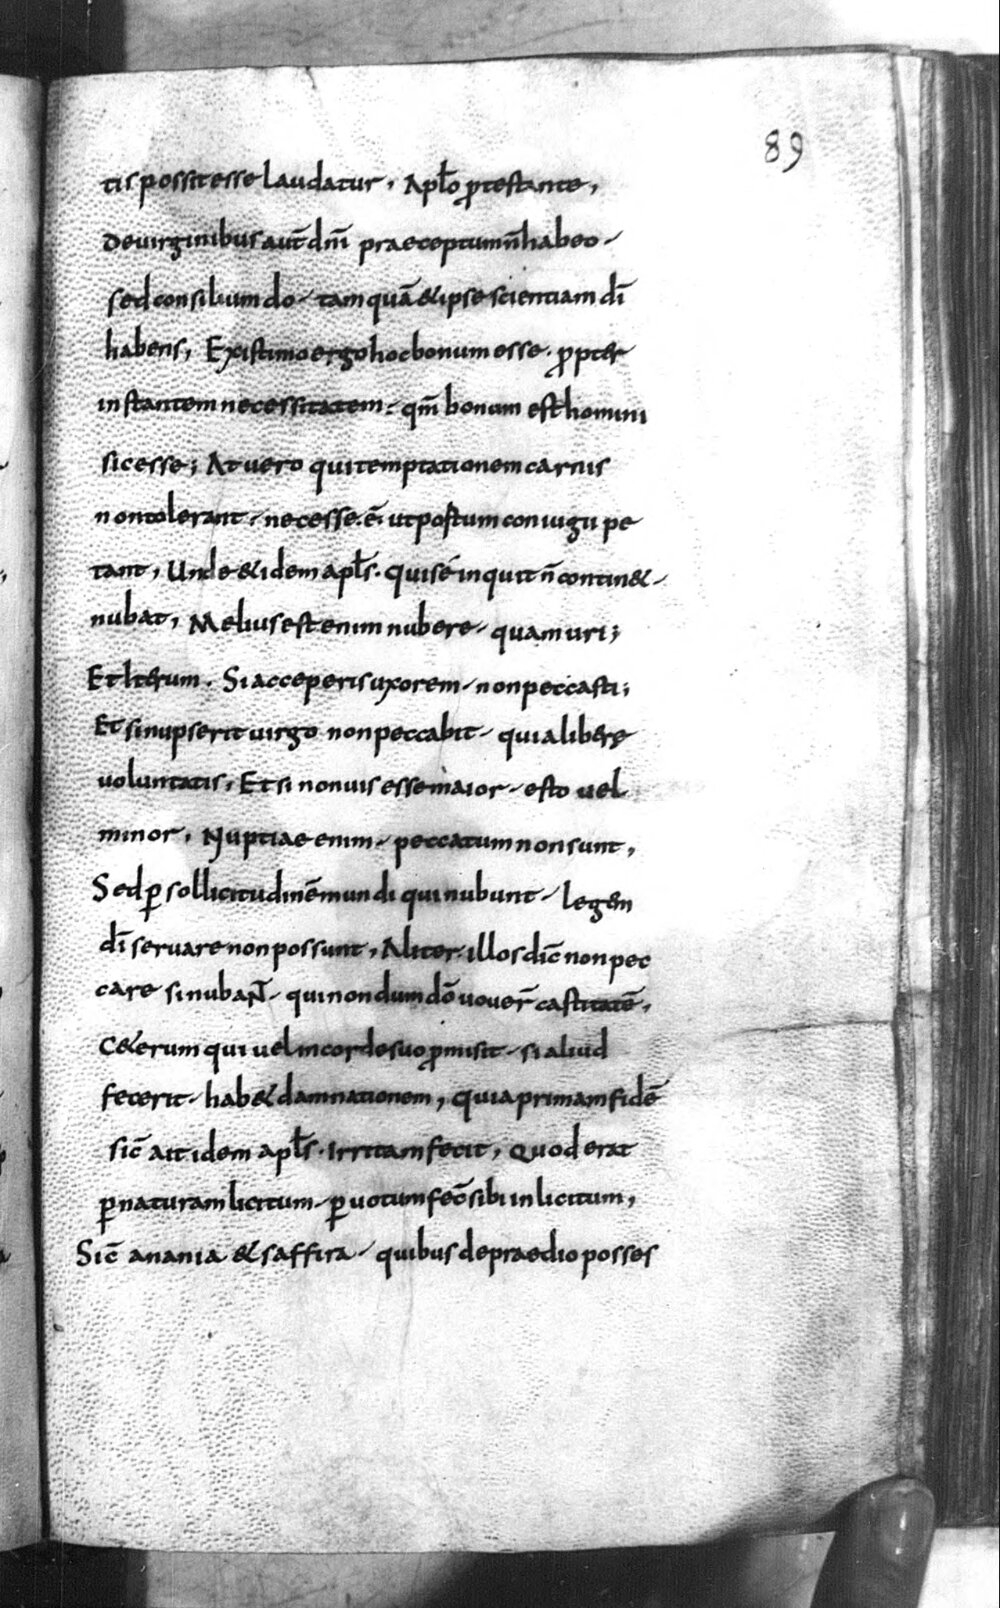 89
tis possit esse laudatur, Apl̅o p̱testante,
de virginibus aut̅ dn̅i praeceptum n̅ habeo
sed consilium do tamquā & ipse scientiam dī
habens, Existimo ergo hoc bonum esse. p̱pter
instantem necessitatem qm̅ bonum est homini
sic esse; At vero qui temptationem carnis
non tolerant necesse. ē. ut postum coniugii pe
tant, Unde & idem apl̅s. qui sé inquit n̅ contin&
nubat, Melius est enim nubere quam uri;
Et Iterum. Si acceperis uxorem non peccasti;
Et si nupserit virgo non peccabit quia liberę
voluntatis, Et si non vis esse maior esto vel
minor, Nuptiae enim peccatum non sunt,
Sed p̱ sollicitudinē mundi qui nubunt legem
dī servare non possunt, Aliter illos dic̅ non pec
care si nubaN̅ qui nondum dō vover̅ castitatē,
C&erum qui vel in corde suo p̱misit si aliud
fecerit hab& damnationem, quia primam fidē
sic̅ ait idem apl̅s. Irritam fecit, Quod erat
p̱ naturam licitum p̱ votum fec̅ sibi inlicitum,
Sic̅ anania & saffira quibus de praedio posses